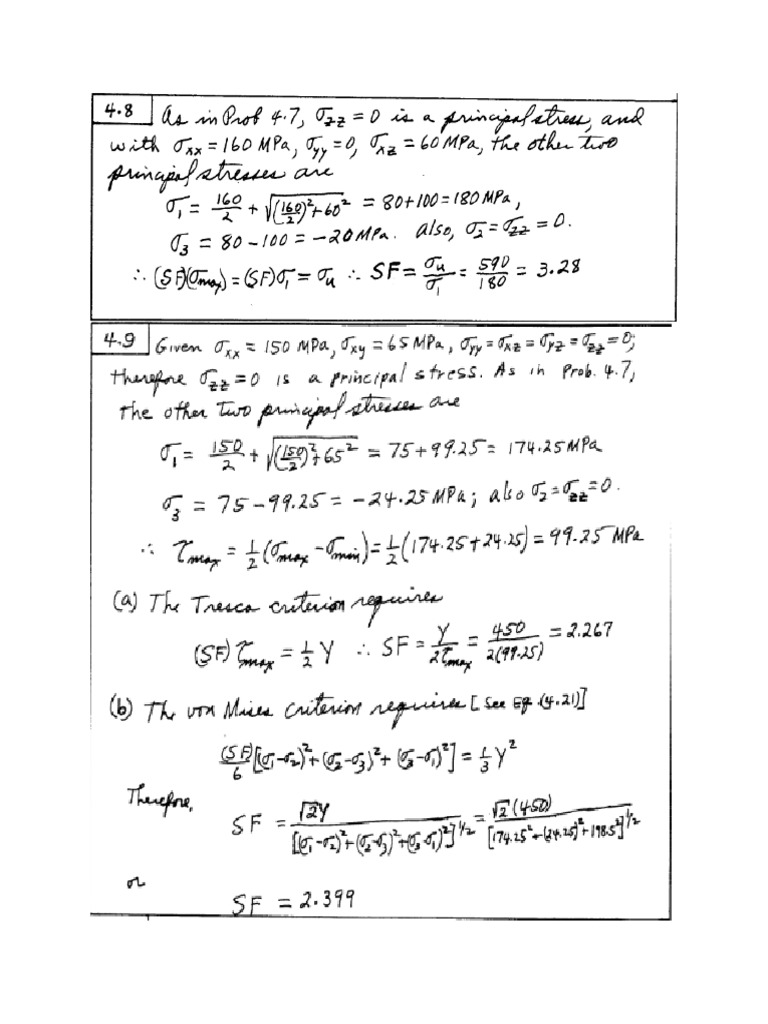 4.8 As in Prob 4.7, σzz = 0 is a principal stress, and
with σxx = 160 MPa, σyy = 0, σxz = 60 MPa, the other two
principal stresses are
σ1 = 160/2 + √((160/2)² + 60²) = 80+100 = 180 MPa,
σ3 = 80 – 100 = – 20 MPa. also, σ2 = σzz = 0.
∴ (SF)(σmax) = (SF)σ1 = σu ∴ SF = σu/σ1 = 590/180 = 3.28
4.9 Given σxx = 150 MPa, σxy = 65 MPa, σyy = σxz = σyz = σzz = 0;
therefore σzz = 0 is a principal stress. As in Prob. 4.7,
the other two principal stresses are
σ1 = 150/2 + √((150/2)² + 65²) = 75 + 99.25 = 174.25 MPa
σ3 = 75 – 99.25 = – 24.25 MPa; also σ2 = σzz = 0.
∴ τmax = 1/2 (σmax – σmin) = 1/2 (174.25 + 24.25) = 99.25 MPa
(a) The Tresca criterion requires
(SF) τmax = 1/2 Y ∴ SF = Y/2τmax = 450/2(99.25) = 2.267
(b) The von Mises criterion requires [See Eq. (4.21)]
(SF)/6 [(σ1–σ2)² + (σ2–σ3)² + (σ3–σ1)²] = 1/3 Y²
Therefore,
SF = √2Y/[(σ1–σ2)² + (σ2–σ3)² + (σ3–σ1)²]^1/2 = √2(450)/[174.25² + (24.25)² + 198.5²]^1/2
or
SF = 2.399